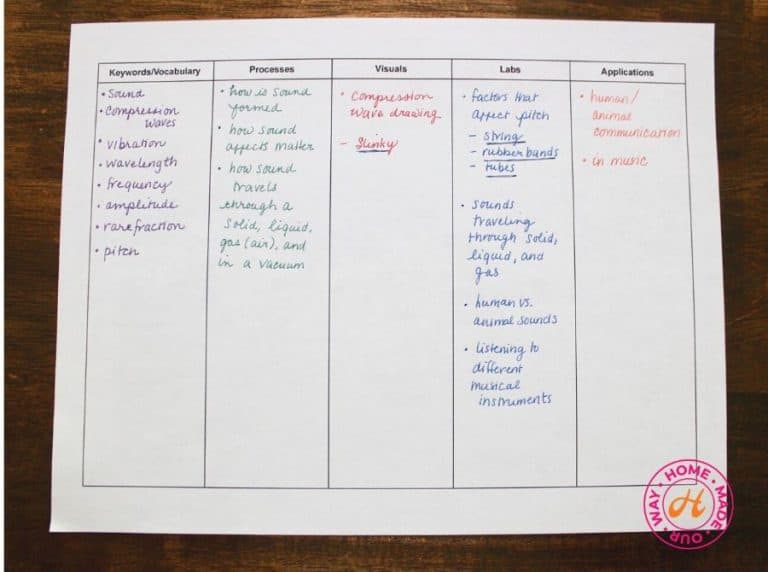 Keywords/Vocabulary
• Sound
• Compression
waves
• vibration
• wavelength
• frequency
• amplitude
• rarefraction
• pitch
Processes
• how is sound
formed
• how sound
affects matter
• how sound
travels
through a
solid, liquid,
gas (air), and
in a vacuum
Visuals
• Compression
wave drawing
– Slinky
Labs
• factors that
affect pitch
– string
– rubber bands
– tubes
• sounds
traveling
through solid,
liquid, and
gas
• human vs.
animal sounds
• listening to
different
musical
instruments
Applications
• human/
animal
communication
• in music
OUR WAY • HOME • MADE •
H